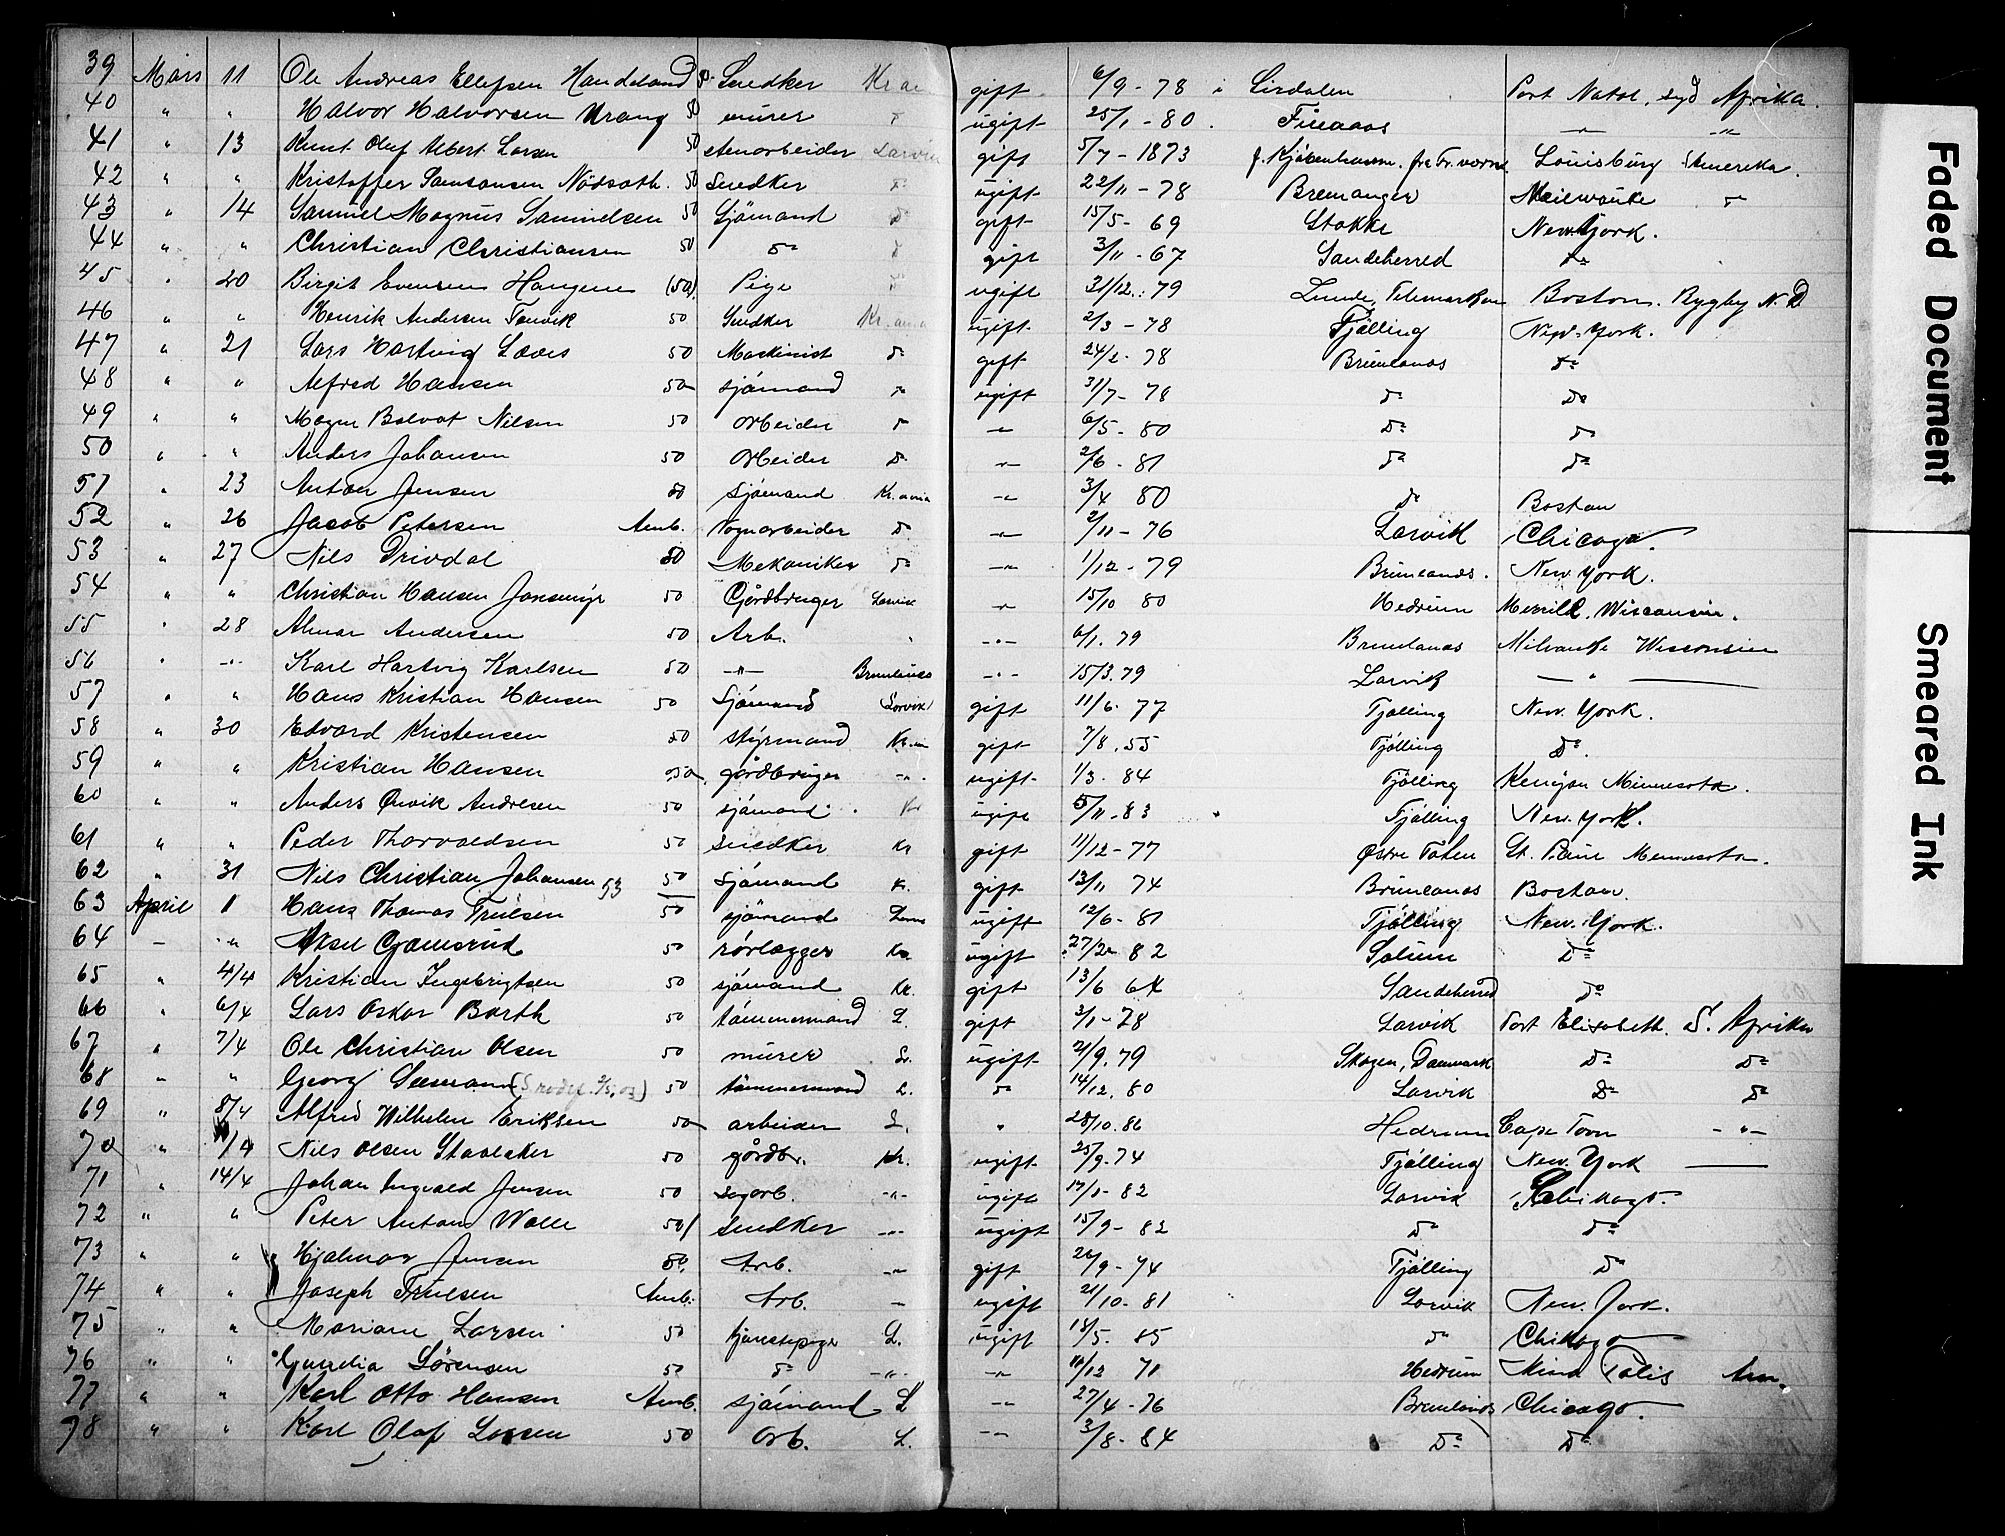 39 Mars 11 Ole Andreas Ellefsen Handeland 50 Snedker Kr.a gift 6/9 - 78 i Sirdalen Port Natal, syd Afrika.
40 " " Halvor Halvorsen Vrang 50 murer " ugift 25/1 - 80. Fineaas " "
41 " 13 Knut Oluf Albert Larsen 50 stenarbeider Larvik gift 5/7 - 1873 f. Kjöbenhavn. Louisburg Amerika.
42 " " Kristoffer Samsonsen Nödseth. 50 Snedker " ugift 22/11 - 78 Bremanger Meilwauke "
43 " 14 Samuel Magnus Samuelsen 50 Sjömand Do gift 15/5 - 69 Stokke New York.
44 " " Christian Christiansen 50 Do gift 3/11 - 67 Sandeherred Do
45 " 20 Birgit Evensen Haugene (50) Pige ugift 31/12. 79 Lunde, Telemarken Boston. Rygby N. D
46 " " Henrik Andersen Tenvik 50 Snedker Kr.ania ugift 2/3 - 78 Tjölling New-York.
47 " 21 Lars Hartvig Laves 50 Maskinist Do gift 24/2 - 78 Brunlanæs Do
48 " " Alfred Hansen 50 sjömand " ugift 31/7 - 78 Do Do
49 " " Magn Bolvat Nilsen 50 Arbeider " " 6/5 - 80 Do Do
50 " " Anders Johansen 50 Arbeider Do " 2/6 - 81 Do Do
51 " 23 Anton Jensen 50 sjömand Kr.ania " 3/4 80 Do Boston
52 " 26 Jacob Petersen Amb. Vognarbeider Do " 2/11 - 76 Larvik Chicago.
53 " 27 Nils Drivdal 50 Mekaniker Do " 1/12 - 79 Brunlanæs. New York.
54 " " Christian Hansen Jonsmyr 50 Gårdbruger Larvik " 15/10 80 Hedrum Merrill, Wisconsin.
55 " 28 Almar Andersen 50 Arb. " " 6/1. 79 Brunlanæs Milvauke Wisconsin
56 " " Karl Hartvig Karlsen 50 " Brunlanæs " 15/3. 79 Larvik — " —
57 " " Hans Kristian Hansen 50 Sjömand Larvik gift 11/6. 77 Tjölling New. York.
58 " 30 Edvard Kristensen 50 styrmand Kr.ia gift 7/8. 55 Tjölling Do.
59 " " Kristian Hansen 50 gårdbruger " ugift 1/3. 84 Tjölling Kenyon Minnesota.
60 " " Anders Ønvik Andresen 50 sjömand. Kr ugift 5/11. 83 Tjölling New. York.
61 " " Peder Thorvaldsen 50 snedker Kr gift 11/12 - 77 Østre Toten St. Paul Mennesota.
62 " 31 Nils Christian Johansen 53 50 Sjömand K. gift 13/11 74 Brunlanæs Boston.
63 April 1 Hans Thomas Trulsen 50 sjömand ugift 12/6 - 81 Tjölling New. York.
64 — " Aksel Gjemsrud 50 rörlægger Kr. ugift 27/2 82 Solum Do
65 " 4/4 Kristian Ingebrigtsen 50 sjömand Kr. gift 13/6 64 Sandeherred Do
66 " 6/4 Lars Oskar Barth 50 tömmermand L. gift 3/1 - 78 Larvik Port Elisabeth. S. Afrika
67 " 7/4 Ole Christian Olsen 50 murer ugift 21/9. 79 Skagen, Danmark Do Do
68 " " Georg Seemann 50 tömmermand L. Do 14/12. 80 Larvik Do Do
69 " 8/4 Alfred Wilhelm Eriksen 50 arbeider L. " 28/10. 86 Hedrum Cape Town — " —
70 " /4 Nils Olsen Stavlaker 50 gårdbr. Kr. ugift 25/9. 74 Tjölling New. York —
71 " 14/4 Johan Ingvald Jensen 50 sagarb. — " — ugift 17/1 - 82 Larvik Chikago.
72 " " Peter Antons Walle 50 snedker — " — ugift 15/9 - 82 Do Do
73 " " Hjalmar Jensen 50 Arb. — " gift 26/9 - 74 Tjölling Do
74 " " Joseph Trulsen Amb. Arb. — ugift 21/10. 81 Larvik New. York.
75 " " Mariane Larsen 50 tjenestepige L. ugift 18/5. 85 Do Chikago
76 " " Gunelia Sörensen 50 Do — " — " 10/12 71 Hedrum Minn Am.
77 " " Karl Otto Hansen Amb. sjömand L " 27/4 - 76 Brunlanæs Chicago.
78 " " Karl Olaf Larsen 50 Arb. L. — " 3/8 - 84 Do Do
Faded Document
Smeared Ink